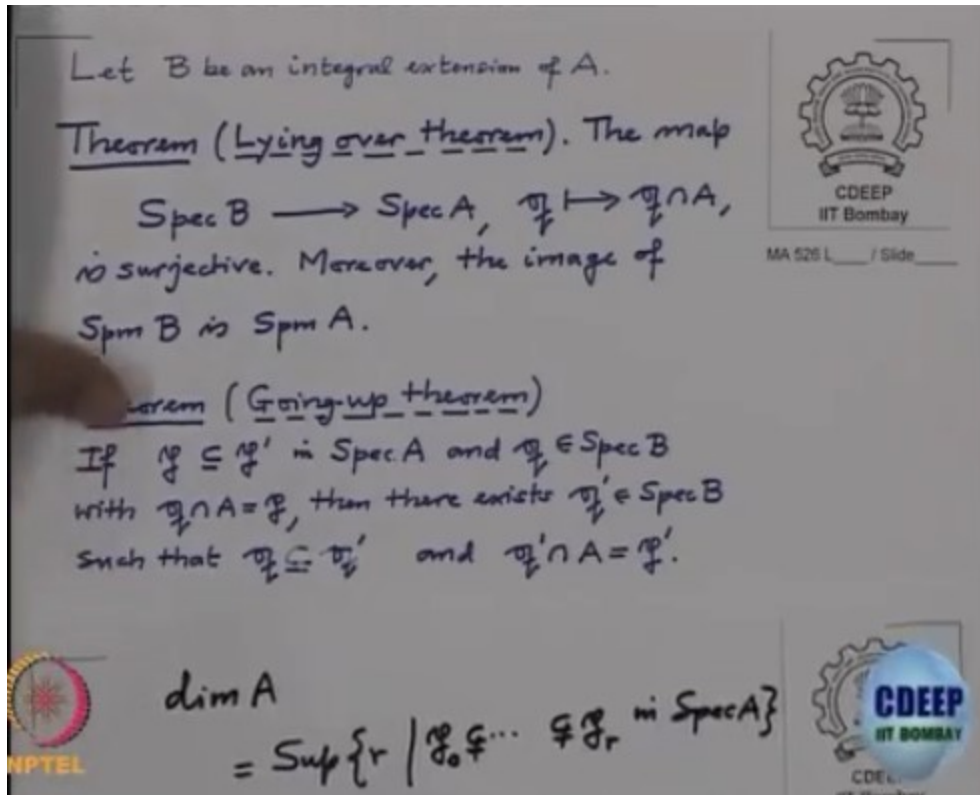 Let B be an integral extension of A.
Theorem (Lying over theorem). The map
Spec B ⟶ Spec A, 𝔮 ⟼ 𝔮∩A,
is surjective. Moreover, the image of
Spm B is Spm A.
(Going-up theorem)
If 𝔭 ⊆ 𝔭' in Spec A and 𝔮 ∈ Spec B
with 𝔮∩A = 𝔭, then there exists 𝔮' ∈ Spec B
such that 𝔮 ⊆ 𝔮' and 𝔮'∩A = 𝔭'.
dim A
= Sup {r | 𝔭₀ ⊊ ··· ⊊ 𝔭ᵣ in Spec A}
CDEEP
IIT Bombay
MA 526 L____ / Slide____
NPTEL
CDEEP
IIT BOMBAY